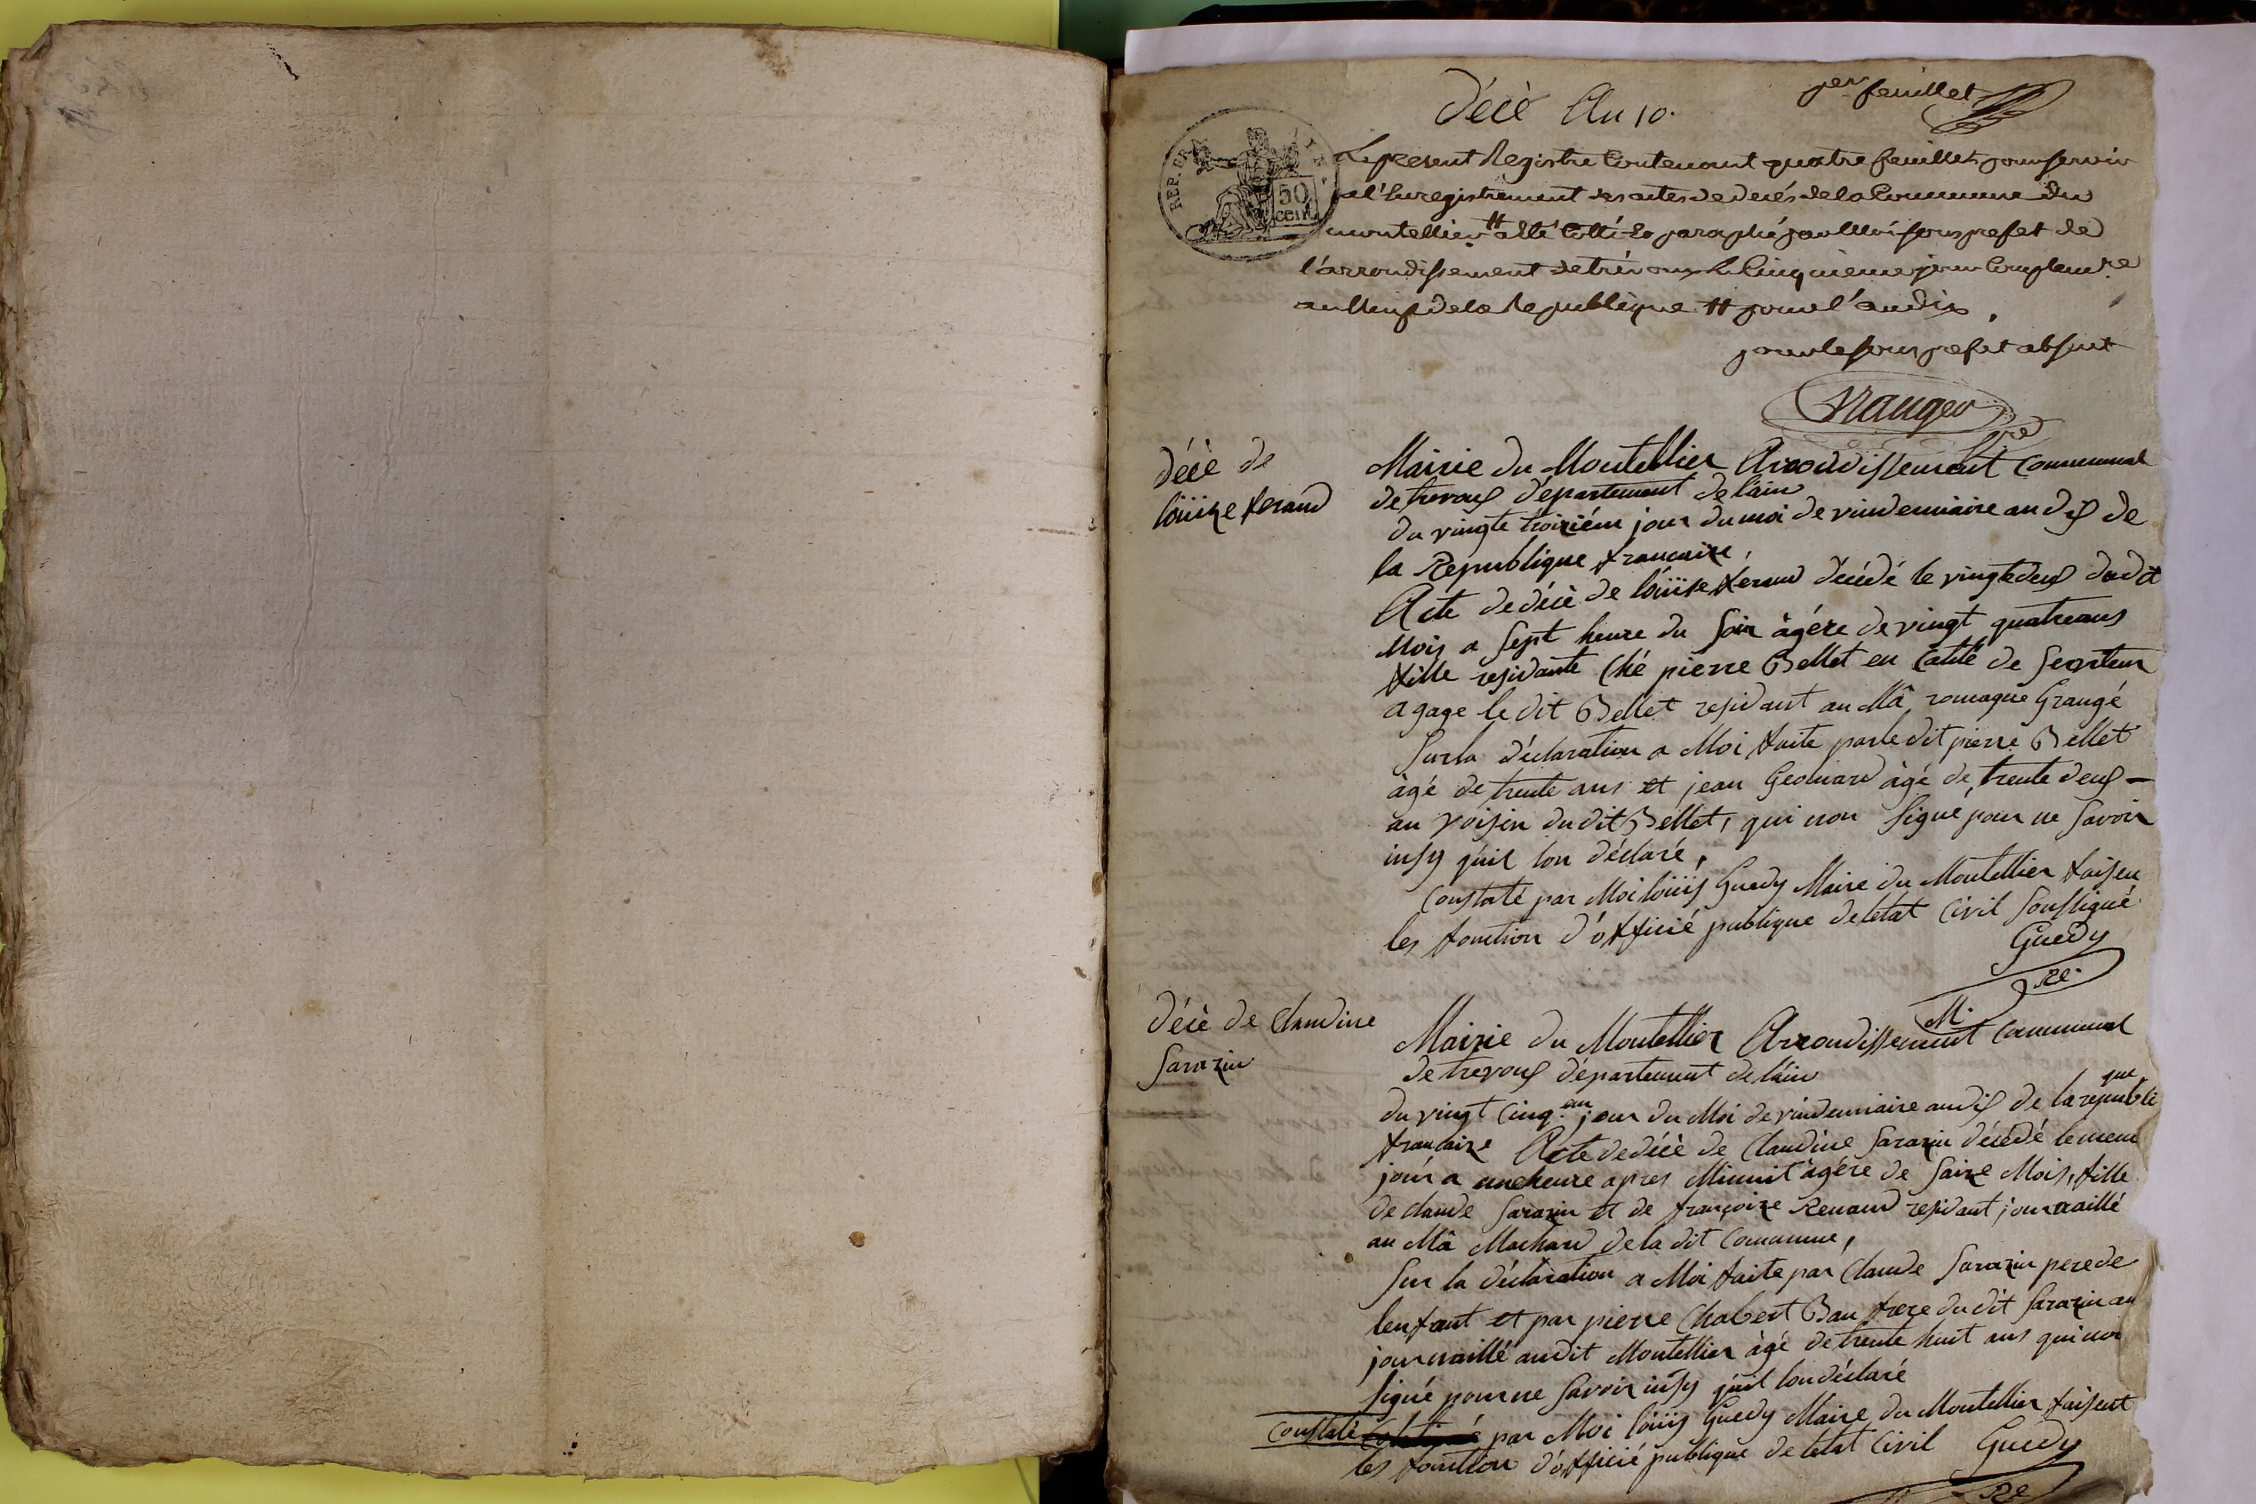 1er feuillet
Décè An 10.
REP. FRA
50
cent
Le present Registre Contenant quatre feuillets pour servir
a l'Enregistrement des actes de decés de la Commune du
montellier # a été Cotté & paraphé par Moi sous prefet de
l'arrondissement de trévoux le Cinquieme jour Complementre
an Neuf de la Republique # pour l'an dix.
pour le sous prefet absent
Décè de
loüise ferand
Mairie du Montellier Arrondissement Communal
de trevoux département de lain
du vingte troiziém jour du moi de vindemiaire an dix de
la Republique francaize,
Acte de décè de loüise ferand décédé le vingtedeux dudit
Mois a sept heure du soir àgéze de vingt quatre ans
fille residante Ché pierre Bellet en Calité de serviteur
a gage le dit Bellet residant au Mâ romague Grangé
Sur la déclaration a Moi faite par le dit pierre Bellet
àgé de trente ans et jean Geonard àgé de trente deux –
an voisin dudit Bellet, qui non signé pour ne savoir
insy quil lon déclaré,
Constaté par Moi loüis Guedy Maire du Montellier faisen
les fonction d'officié publique de létat Civil soussigné
Guedy
M. re.
Décè de Claudine
Sarazin
Mairie du Montellier Arrondissement Communal
de trevoux département de láin
du vingt Cinq.em jour du Moi de vindemiaire an dix de la republique
francaize Acte de décè de Claudine Sarazin décédé le mem
jour a une heure apres Minuit àgéze de saize Mois, fille
de Claude Sarazin et de françoize Renaud residant journaillé
au Mâ Machard de la dit Commune,
Sur la déclaration a Moi faite par Claude Sarazin pere de
lenfant et par pierre Chabert Bau frere du dit Sarazin au
journaillé audit Montellier àgé de trente huit ans qui non
signé pour ne savoir insy quil lon déclaré
Constaté par Moi loüis Guedy Maire du Montellier faisent
les fonction d'officié publique de létat Civil Guedy
re